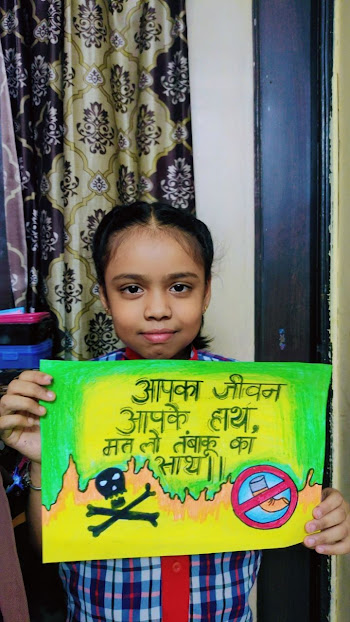 आपका जीवन
आपके हाथ,
मत लो तंबाकू का
साथ।।